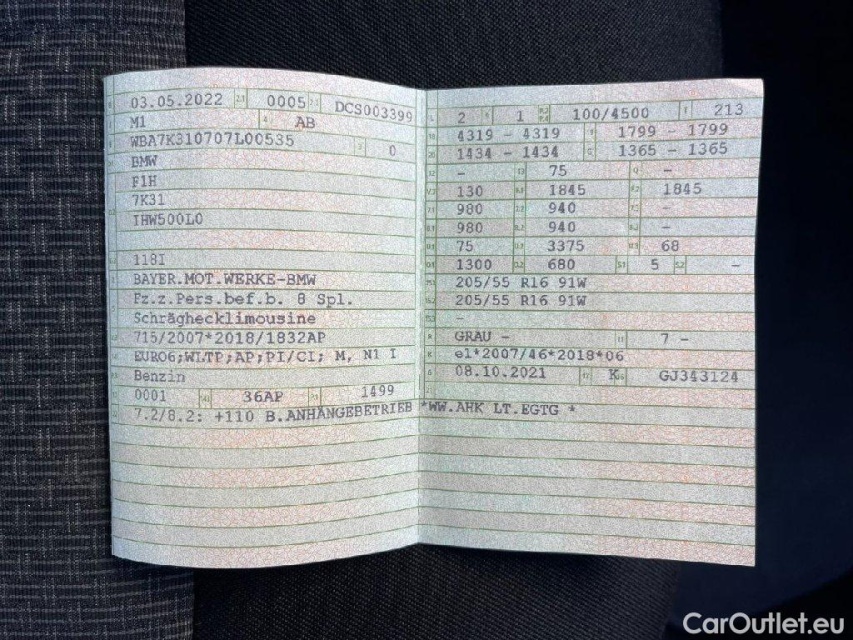 03.05.2022 0005 DCS003399
M1 AB
WBA7K310707L00535 0
BMW
F1H
7K31
IHW500L0
118I
BAYER.MOT.WERKE-BMW
Fz.z.Pers.bef.b. 8 Spl.
Schräghecklimousine
715/2007*2018/1832AP
EURO6;WLTP;AP;PI/CI; M, N1 I
Benzin
0001 36AP 1499
7.2/8.2: +110 B.ANHÄNGEBETRIEB *WW.AHK LT.EGTG *
2 1 100/4500 213
4319 - 4319 1799 - 1799
1434 - 1434 1365 - 1365
- 75 -
130 1845 1845
980 940 -
980 940 -
75 3375 68
1300 680 5 -
205/55 R16 91W
205/55 R16 91W
-
GRAU - 7 -
e1*2007/46*2018*06
08.10.2021 K GJ343124
CarOutlet.eu